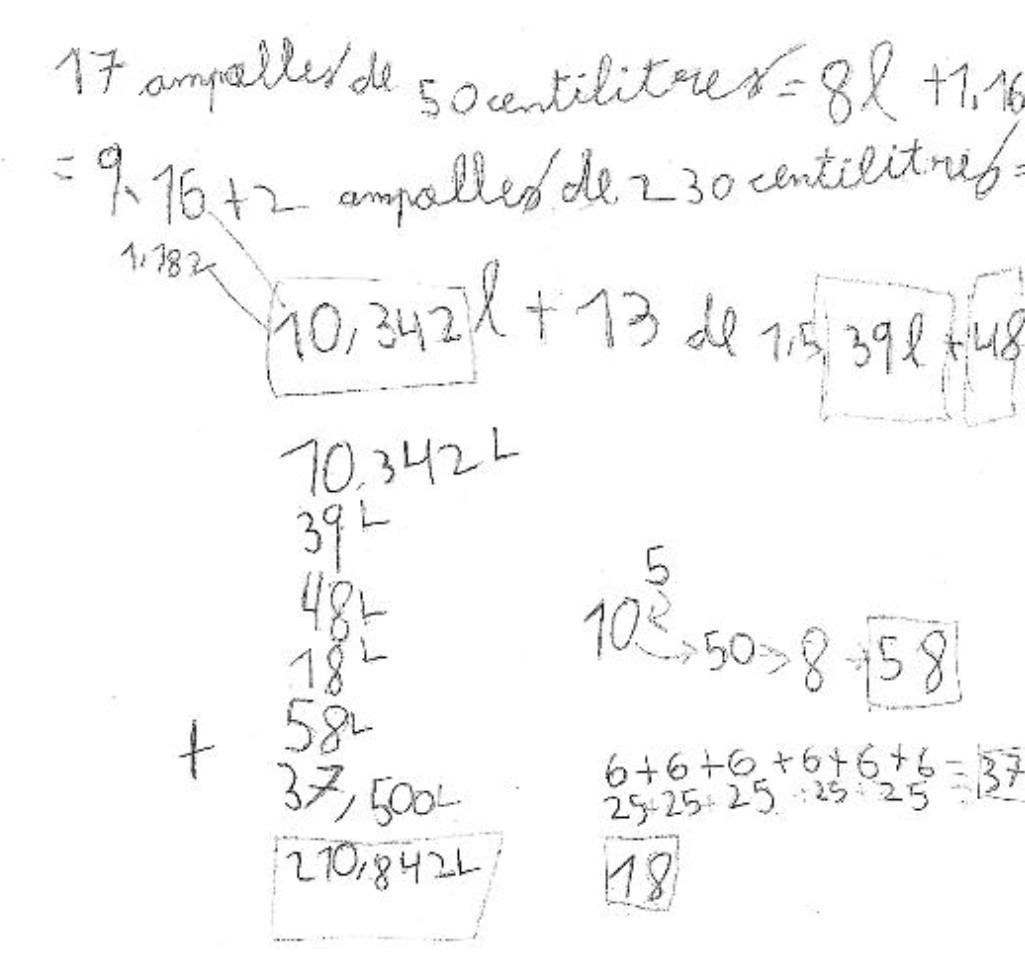 17 ampolles de 50 centilitres = 8l + 1,16
= 9,16 + 2 ampolles de 230 centilitres =
1,182
10,342 l + 13 de 1,5 39l + 48
10,342 L
39 L
48 L
18 L
58 L
+ 37,500 L
210,842 L
5
10 → 50 → 8 → 58
6+6+6+6+6+6 = 37
25 25 25 25 25
18